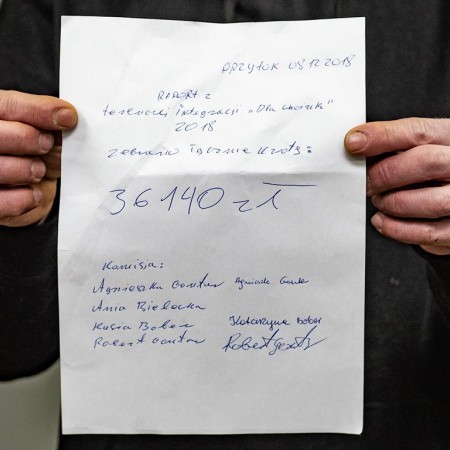 PRZYTOK 08.12.2018
RAPORT z
terenowej integracji „Dla choink”
2018
zebrano łącznie kwotę:
36140 zł
Komisja:
Agnieszka Gontar Agnieszka
Ania Bielecka
Kasia Bober Katarzyna Bober
Robert Gontar Robert